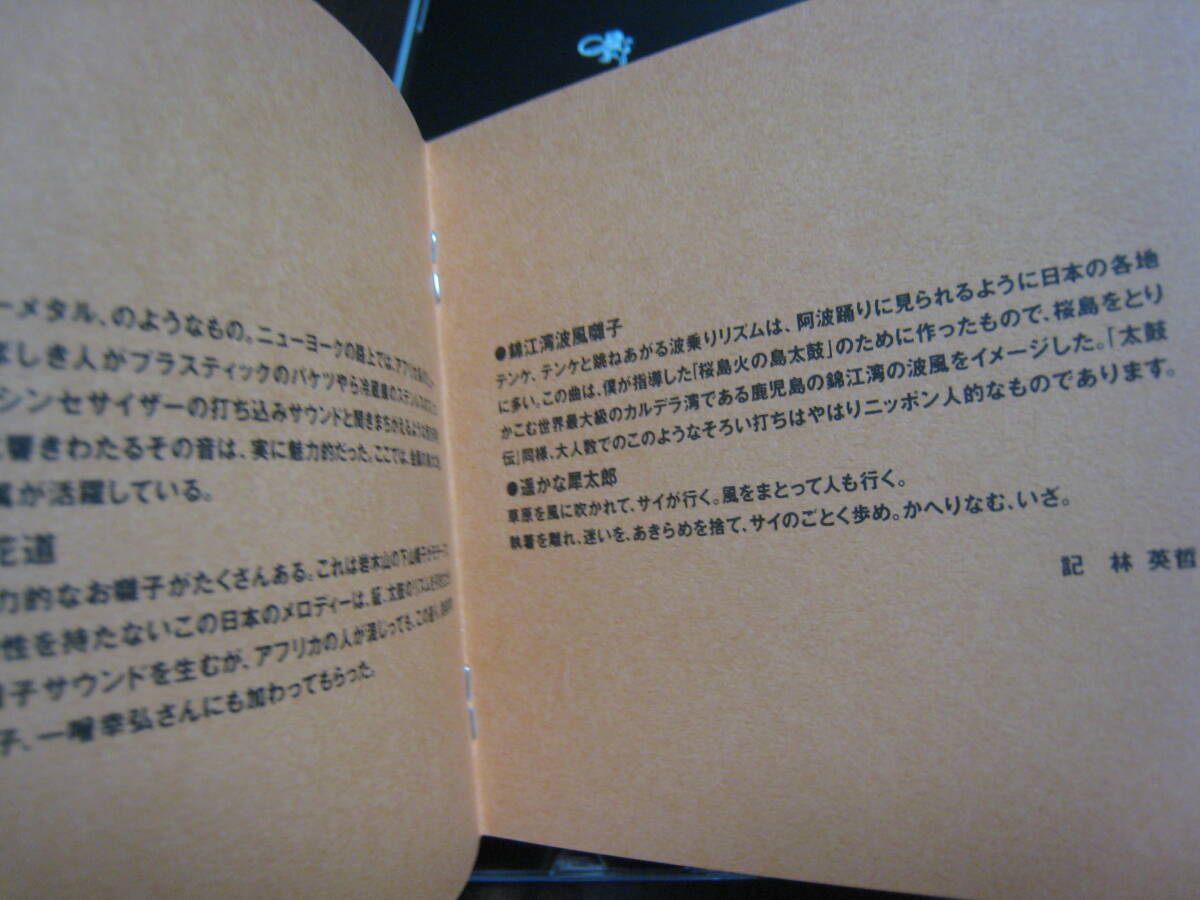 ーメタル、のようなもの。ニューヨークの路上では、アフ
ばしき人がプラスティックのバケツやら冷蔵庫のステンレス
シンセサイザーの打ち込みサウンドと聞きまちがえるような
に響きわたるその音は、実に魅力的だった。ここでは、金属の
属が活躍している。
花道
力的なお囃子がたくさんある。これは岩木山の下山囃子が
性を持たないこの日本のメロディーは、鉦、太鼓のリズム
子サウンドを生むが、アフリカの人が混じっても、この通り、
子、一噌幸弘さんにも加わってもらった。
●錦江湾波風囃子
テンケ、テンケと跳ねあがる波乗りリズムは、阿波踊りに見られるように日本の各地
に多い。この曲は、僕が指導した「桜島火の島太鼓」のために作ったもので、桜島をとり
かこむ世界最大級のカルデラ湾である鹿児島の錦江湾の波風をイメージした。「太鼓
伝」同様、大人数でのこのようなそろい打ちはやはりニッポン人的なものであります。
●遥かな犀太郎
草原を風に吹かれて、サイが行く。風をまとって人も行く。
執着を離れ、迷いを、あきらめを捨て、サイのごとく歩め。かへりなむ、いざ。
記 林 英哲